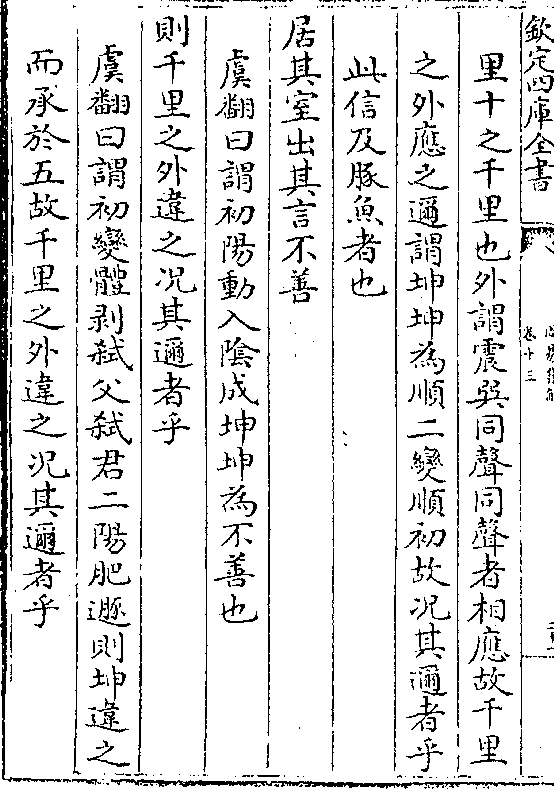 欽定四庫全書
卷十三
里十之千里也外謂震巽同聲同聲者相應故千里
之外應之邇謂坤坤為順二變順初故况其邇者乎
此信及豚魚者也
居其室出其言不善
虞翻曰謂初陽動入陰成坤坤為不善也
則千里之外違之况其邇者乎
虞翻曰謂初變體剥弑父弑君二陽肥遯則坤違之
而承於五故千里之外違之况其邇者乎